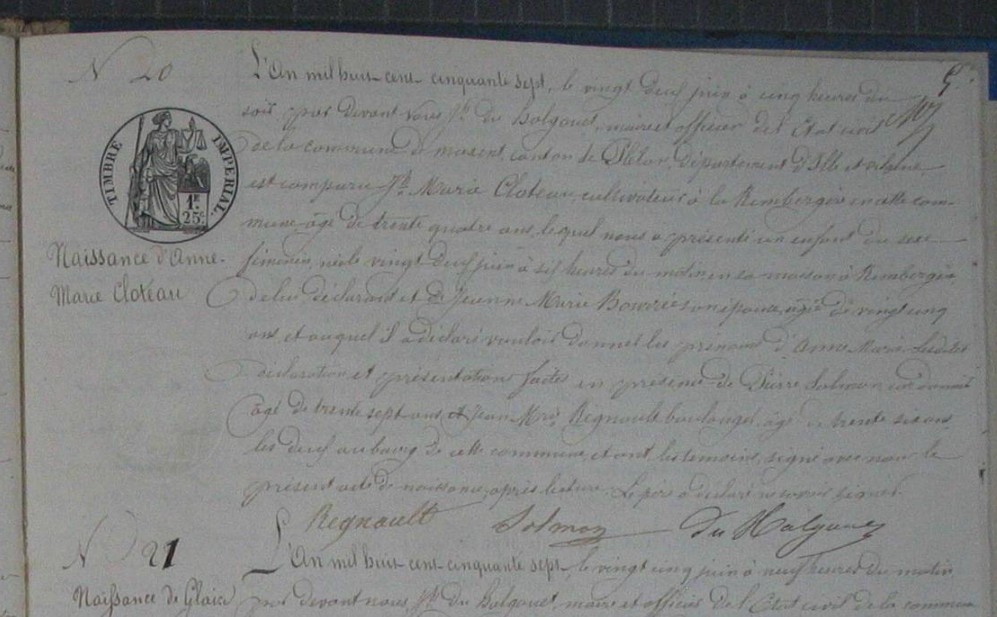 N 20
5.
TIMBRE IMPERIAL
1F
25c
Naissance d'Anne-
Marie Cloteau
L'An mil huit-cent-cinquante sept, le vingt deux juin à cinq heures du
soir par devant nous Jh du Halgouet, maire et officier de l'Etat civil
de la commune de maxent, canton de Plélan, Département d'Ille et vilaine
est comparu Jh Marie Cloteau, cultivateur à la Rembergère en cette com-
mune âgé de trente quatre ans, lequel nous a présenté un enfant du sexe
féminin, né le vingt deux juin à six heures du matin en sa maison à Rembergère
de lui déclarant et de Jeanne Marie son épouse, âgée de vingt cinq
ans et auquel il a déclaré vouloir donner les prénoms d'Anne Marie Lesdites
déclaration et présentation faites en présence de Pierre Salmon cordonnier
âgé de trente sept ans et Jean Mrie Regnault, boulanger, âgé de trente six ans
les deux au bourg de cette commune, et ont les temoins, signé avec nous le
présent acte de naissance, après lecture. Le père a déclaré ne savoir signer.
Regnault Salmon du Halgouet
N 21
Naissance de
L'An mil huit-cent-cinquante sept, le vingt cinq juin à neuf heures du matin
par devant nous, Jh du Halgouet, maire et officier de l'Etat civil de la commune